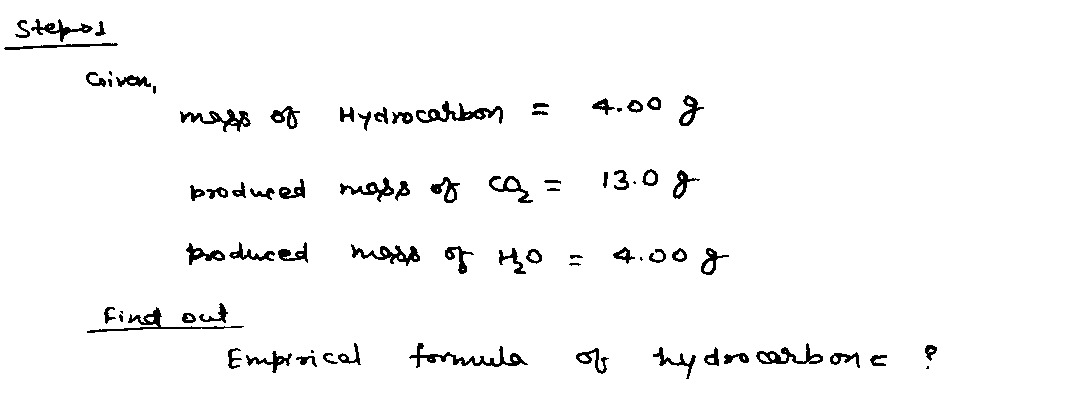 Step-01
Given,
mass of Hydrocarbon = 4.00 g
produced mass of CO₂ = 13.0 g
produced mass of H₂O = 4.00 g
Find out
Empirical formula of hydrocarbon = ?